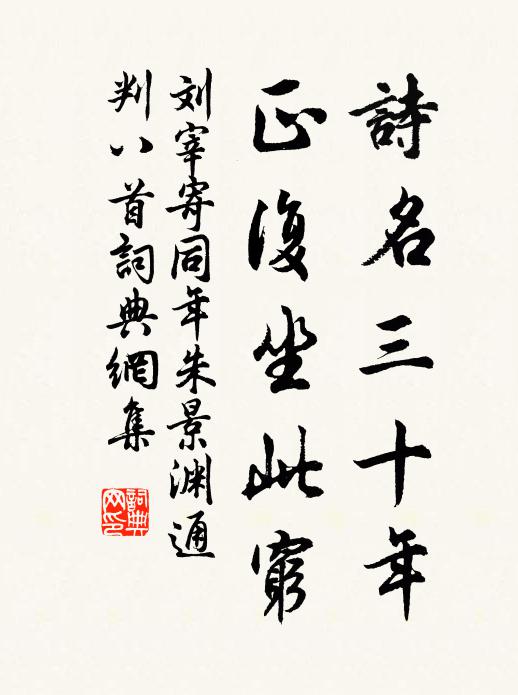 詩名三十年
正復坐此窮
刘宰寄同年朱景渊通
判八首詞典網集
詞典网印